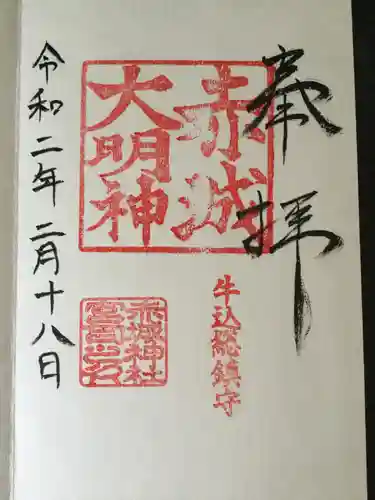 奉拝
赤城
大明神
牛込総鎮守
赤城神社
宮司之印
令和二年 二月十八日